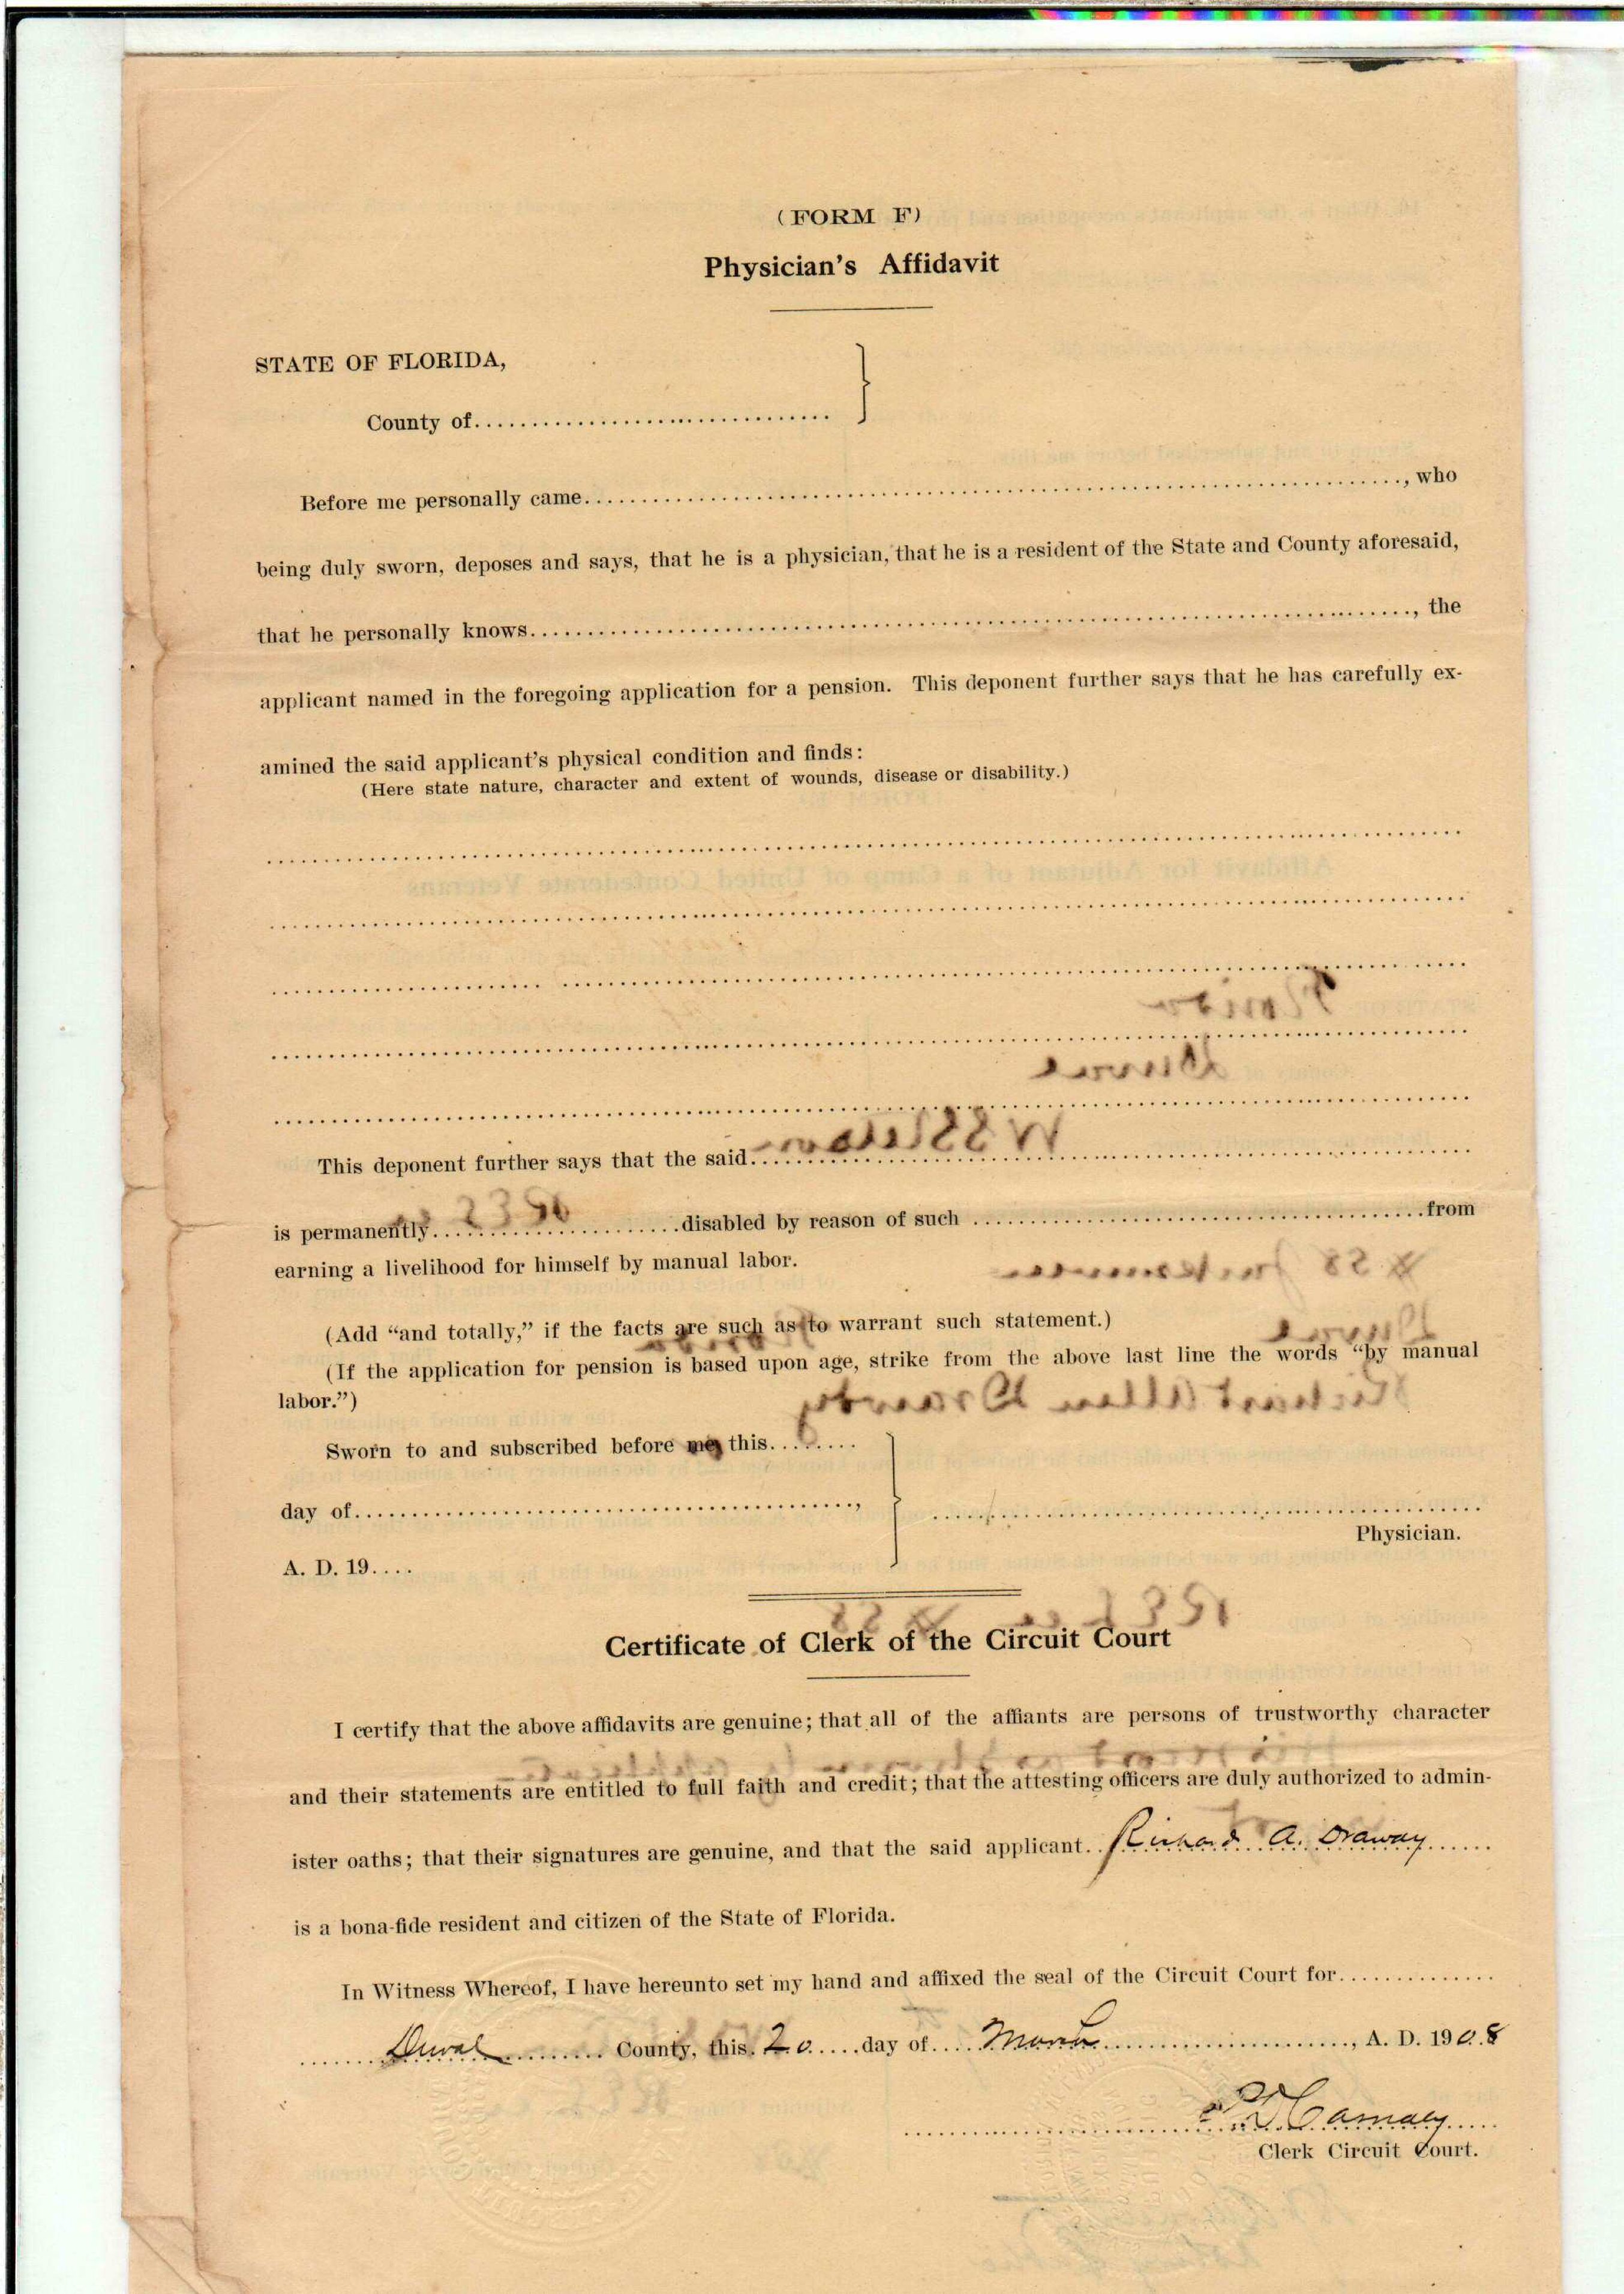 (FORM F)
Physician's Affidavit
STATE OF FLORIDA,
County of
Before me personally came , who
being duly sworn, deposes and says, that he is a physician, that he is a resident of the State and County aforesaid,
that he personally knows , the
applicant named in the foregoing application for a pension. This deponent further says that he has carefully ex-
amined the said applicant's physical condition and finds:
(Here state nature, character and extent of wounds, disease or disability.)
This deponent further says that the said
is permanently disabled by reason of such from
earning a livelihood for himself by manual labor.
(Add “and totally,” if the facts are such as to warrant such statement.)
(If the application for pension is based upon age, strike from the above last line the words “by manual
labor.”)
Sworn to and subscribed before me this
day of ,
Physician.
A. D. 19
Certificate of Clerk of the Circuit Court
I certify that the above affidavits are genuine; that all of the affiants are persons of trustworthy character
and their statements are entitled to full faith and credit; that the attesting officers are duly authorized to admin-
ister oaths; that their signatures are genuine, and that the said applicant Richard A. Drawdy
is a bona-fide resident and citizen of the State of Florida.
In Witness Whereof, I have hereunto set my hand and affixed the seal of the Circuit Court for
Duval County, this 20 day of March , A. D. 1908
Clerk Circuit Court.